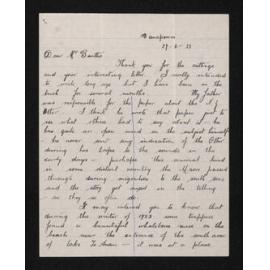 Manapouri
29-6-33
Dear Mr Beattie
Thank you for the cuttings
and your interesting letter. I really intended
to write long ago but I have been in the
bush for several months. My father
was responsible for the paper about the N.Z
Otter. I think he wrote that paper just to
see what others had to say about it as he
has quite an open mind on the subject himself
he never saw any indication of the Otter
during his trips to the sounds in the
early days - perhaps this animal lived
in some distant country the Maoris passed
through during migration to the south
and the story got mixed in the telling
as they so often do.
I may interest you to know that
during the winter of 1923 some trappers
found a beautiful whalebone mere on the
beach near the entrance of the south arm
of Lake Te Anau - it was at a place